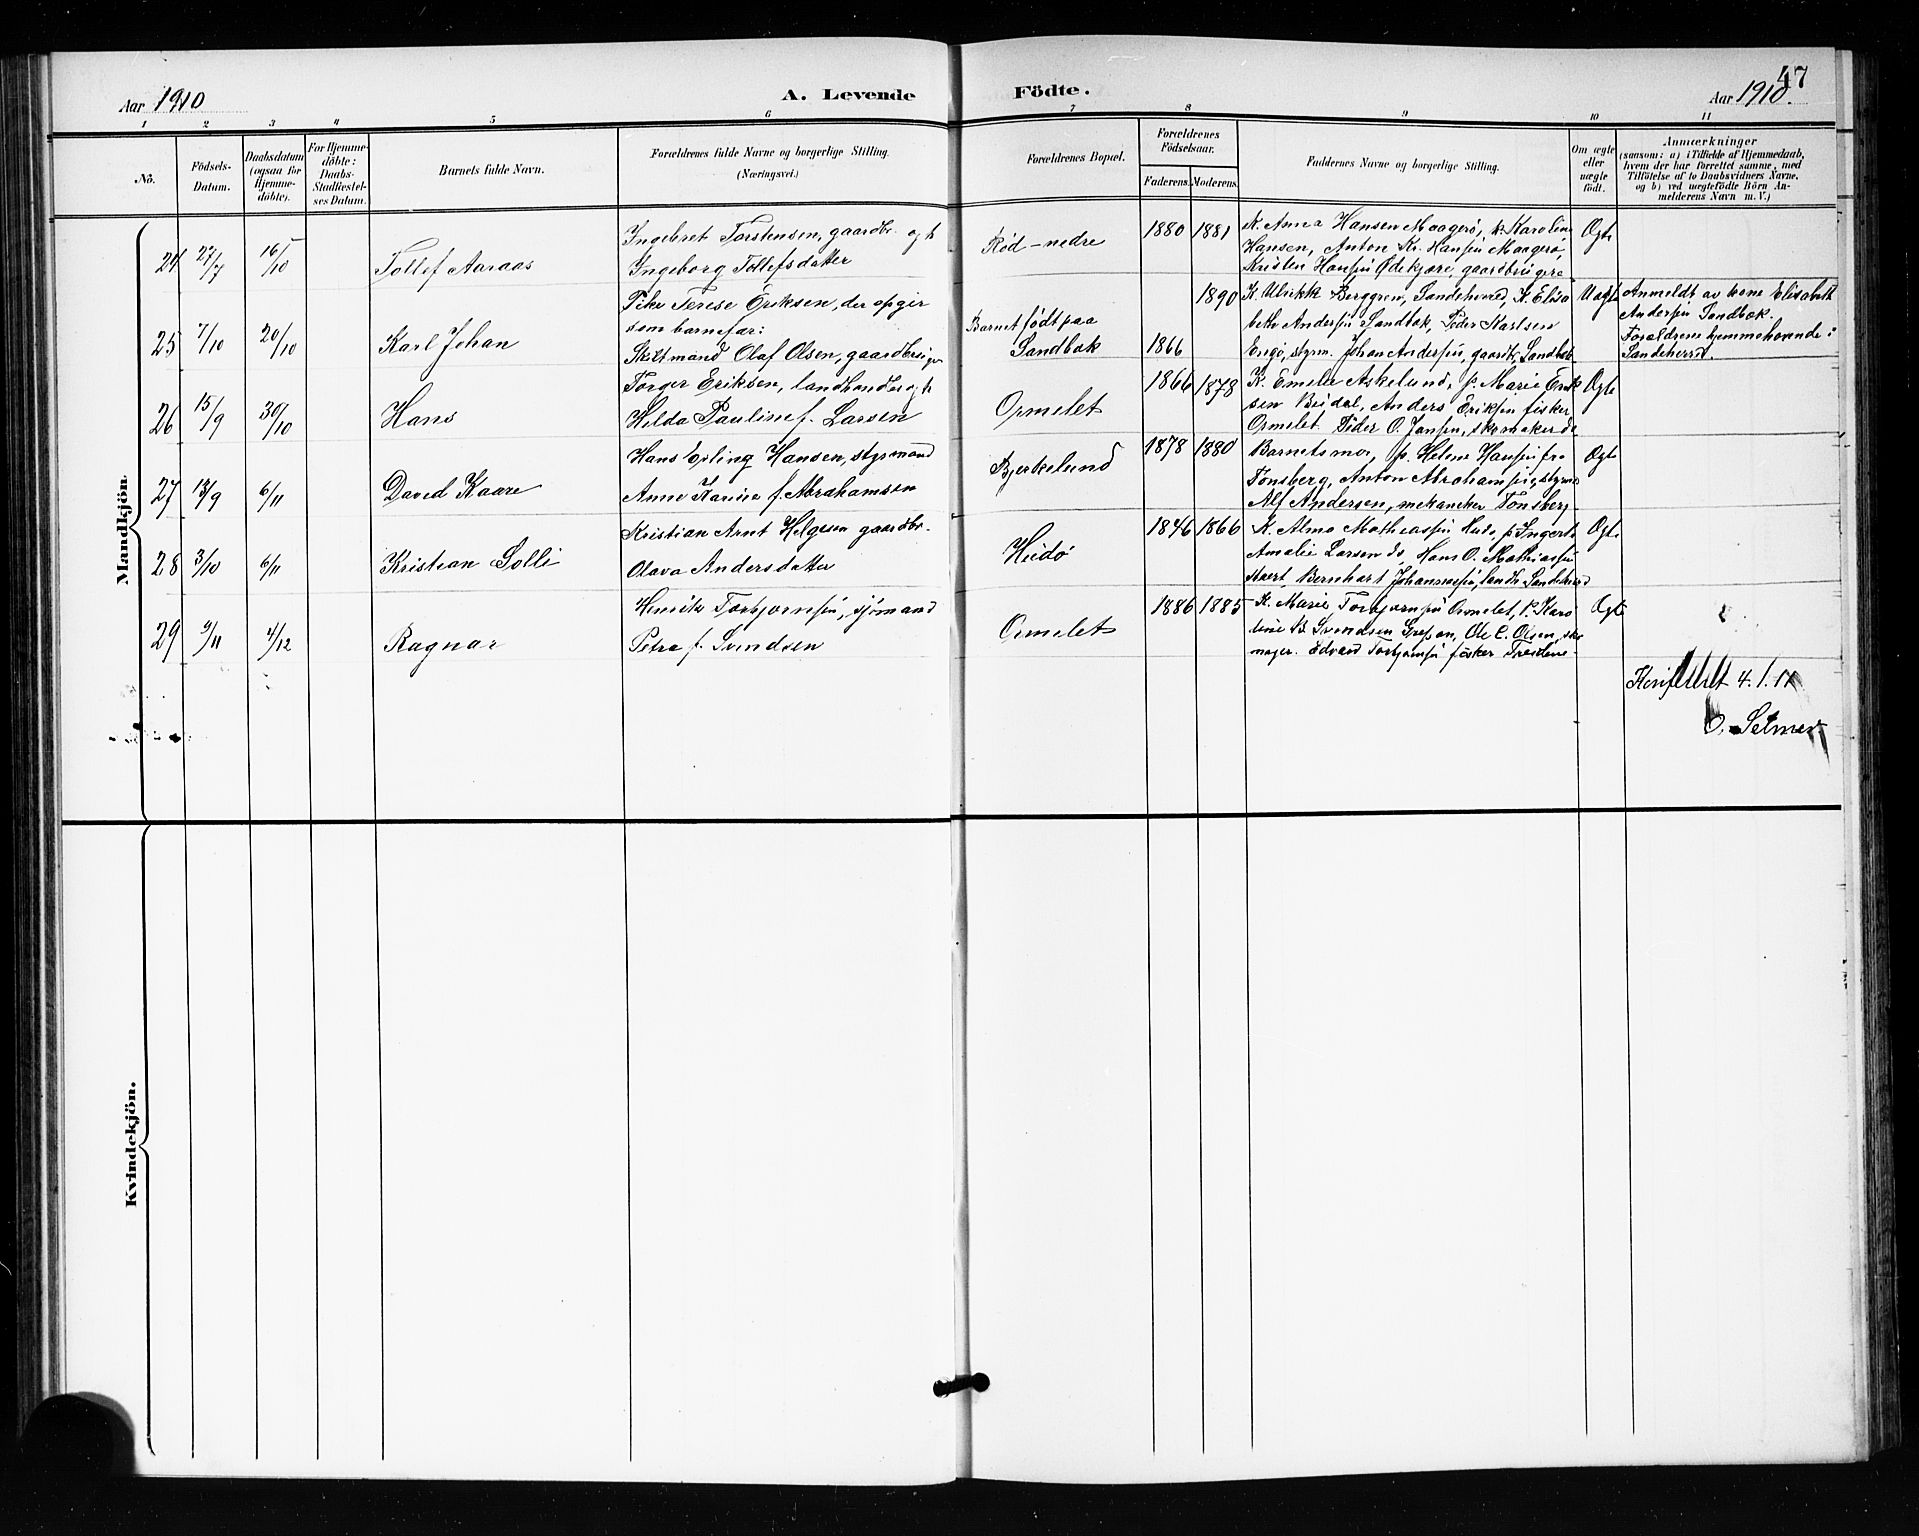 47
Aar 1910
A. Levende
Födte.
Aar 1910.
1 2 3 4 5 6 7 8 9 10 11
No.
Födsels-
Datum.
Daabsdatum
(ogsaa for
Hjemme-
döbte).
For Hjemme-
döbte:
Daabs-
Stadfæstel-
ses Datum.
Barnets fulde Navn.
Forældrenes fulde Navne og borgerlige Stilling.
(Næringsvei.)
Forældrenes Bopæl.
Forældrenes
Födselsaar.
Faderens. Moderens.
Faddernes Navne og borgerlige Stilling.
Om ægte
eller
uægte
födt.
Anmærkninger
(saasom: a) i Tilfælde af Hjemmedaab,
hvem der har forrettet samme, med
Tilföielse af to Daabsvidners Navne,
og b) ved uægtefödte Börn An-
melderens Navn m. V.)
Mandkjön.
24 27/7 16/10 Tollef Aaraas
Ingebret Torstensen, gaardbr. og h
Ingeborg Tollefsdatter
Rød-nedre
1880 1881
K. Anna Hansen Maagerø, p. Karoline
Hansen, Anton Kr. Hansen Maagerø,
Kristen Hansen Ødekjære, gaardbrugere
Ogte
25 7/10 20/10 Karl Johan
Pike Terese Eriksen, der opgir
som barnefar:
Skiltmand Olaf Olsen, gaardbruger
Barnet født paa
Sandbæk
1890
1866
K. Ulrikk Berggren, Sandeherred, K. Elisa
beth Andersen Sandbæk, Peder Karlsen
Engø, styrm. Johan Andersen, gaardbr, Sandbæk
Uægte
Anmeldt av kone Elisabeth
Andersen Sandbæk.
Forældrene hjemmehørende i
Sandeherred.
26 15/9 30/10 Hans
Torger Eriksen, landhandler og h
Hilda Pauline f. Larsen
Ormelet
1866 1878
K. Emelie Askelund, p. Marie Erik
sen Breidal, Anders Eriksen fisker
Ormelet Peder O. Jansen, skomaker do
Ogte
27 13/9 6/11 David Kaare
Hans Erling Hansen, styrmand
Anne Karine f. Abrahamsen
Bjerkelund
1878 1880
Barnets mor, p. Helene Hansen fra
Tønsberg, Anton Abrahamsen styrm
Alf Andersen, mekaneker Tønsberg
Ogte
28 3/10 6/11 Kristian Solli
Kristian Arnt Helgesen gaardbr.
Olava Andersdatter
Heidø
1846 1866
K. Alma Mathiassen Hudø, p. Ingerts
Amalie Larsen do, Hans O. Mathiassen
Bernhart Johannesen, landh. Sandeherred
Ogte
29 9/11 4/12 Ragnar
Henrik Torbjørnsen, sjømand
Petra f. Svendsen
Ormelet
1886 1885
K. Marie Torbjørnsen Ormelet, P. Karo
line B. Svendsen Grepan, Ole C. Olsen, sko
mager. Edvard Torbjørnsen fisker
Ogte
Konfereret 4.1.11
O. Selmer
Kvindekjön.